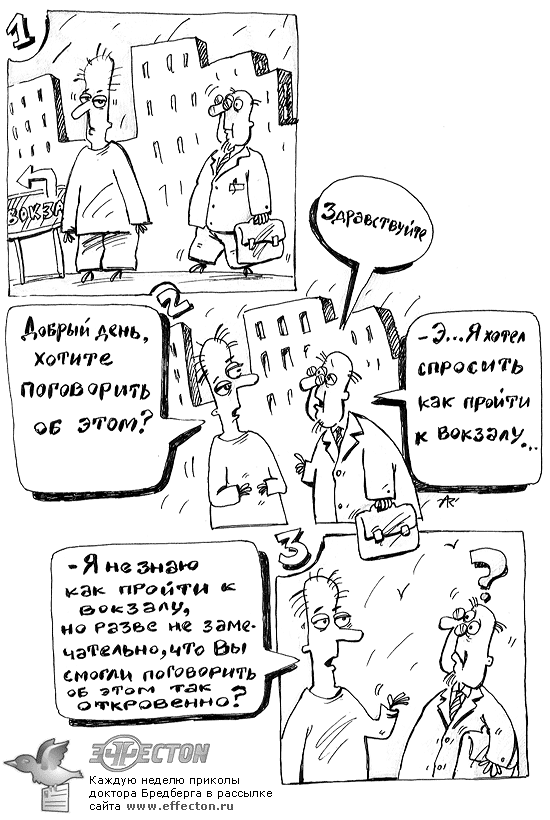 1
ВОКЗА
Здравствуйте
2
Добрый день,
хотите
поговорить
об этом?
-Э...Я хотел
спросить
как пройти
к вокзалу...
3
-Я не знаю
как пройти к
вокзалу,
но разве не заме-
чательно, что Вы
смогли поговорить
об этом так
откровенно?
?
EFFECTON
Каждую неделю приколы
доктора Бредберга в рассылке
сайта www.effecton.ru